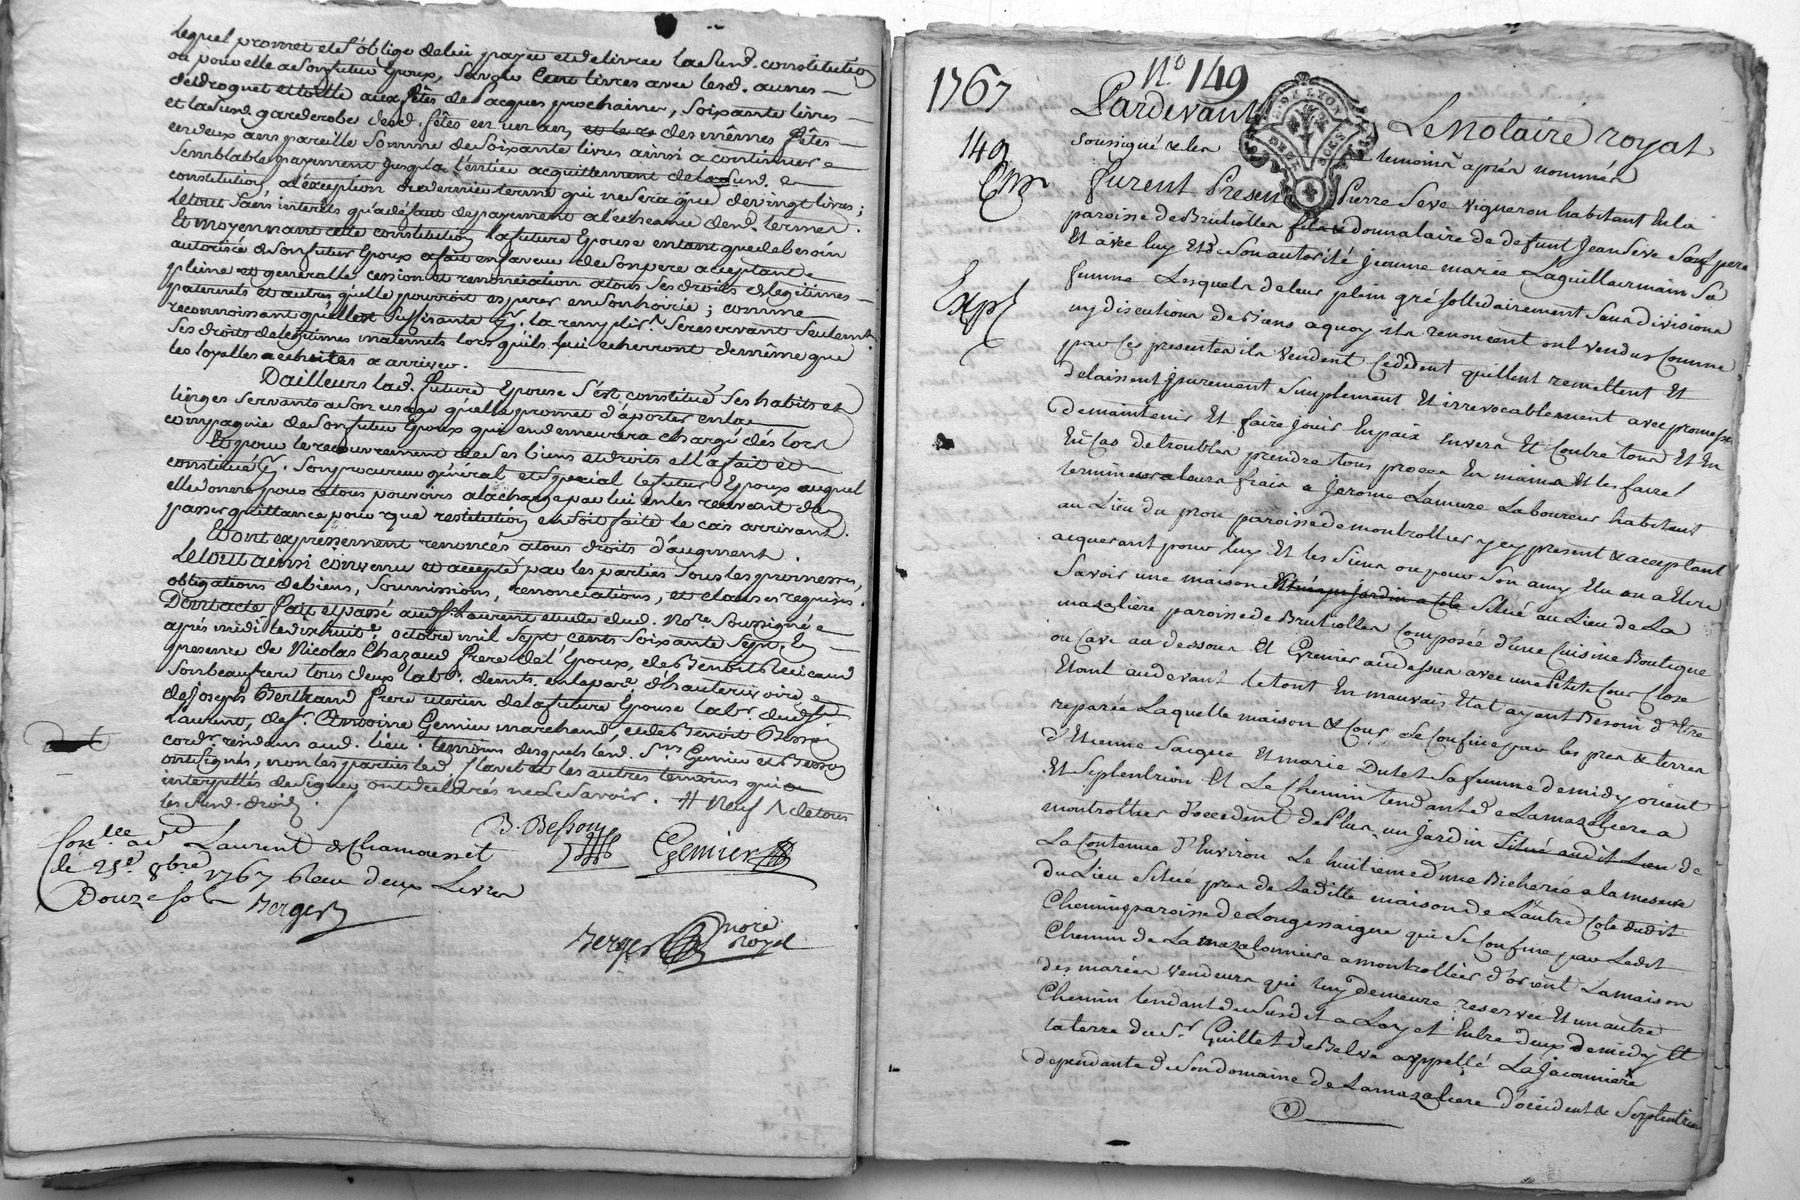 lequel promet et s'oblige de lui payer et delivrer lad. Susd. constitution
ou pour elle a son futur Epoux, Savoir Cent livres avec lesd. aunes
de droguet et toille aux fêtes de Pacques prochaines, soixante livres
et lad. Susd. garderobe desd. fêtes en un an, et les des mêmes fêtes
en deux ans pareille Somme de soixante livres ainsi a continuer
Semblable payement jusqu'a l'entier acquittement de lad. Susd.
constitution, a l'éxception du dernier terme qui ne sera que de vingt livres;
le tout sans interêts qu'a défaut de payement a l'echeance desd. termes.
Et moyennant cette constitution la future Epouse entant que de besoin
autorisée de son futur Epoux a fait en faveur de son pere acceptant
pleine et generalle cession et renonciation a tous ses droits de legitimes
paternels et autres qu'elle pourroit esperer en son hoirie; comme
reconnoissant qu'elle est suffisante pr. la remplir, se reservant seulemt.
Ses droits de legitimes maternels lors quils lui echerront de même que
les loyalles echeites a arriver.
D'ailleurs lad. future Epouse s'est constitué ses habits et
linges servants a son usage qu'elle promet d'aporter en la
compagnie de son futur Epoux qui en demeurera chargé dès lors
Et pour le recouvrement de ses biens et droits elle a fait et
constitué pr. son procureur général et spécial le futur Epoux auquel
elle donne pour a tous pouvoirs a la charge par lui en les recevant d'en
passer quittance pour que restitution en soit faite le cas arrivant.
Et ont expressement renoncés a tous droits d'augment.
Le tout ainsi convenu et accepté par les parties sous les promesses,
obligations de biens, soumissions, renonciations, et clauses requises.
Dont acte fait et passé aud. St. Laurent etude dud. Nore. soussigné
après midi le dix huit e octobre mil sept cents soixante sept, En
presence de Nicolas Chazaud frere de l'Epoux, de Benoit
son beaufrere tous deux labrs. demts. en la par. d'hauterivoire
de joseph Bertrand frere uterin de la future Epouse labr. dud. St
Laurent, de sr. Antoine Gemier marchand, et de Benoit Besson
cordr. résidans aud. lieu. temoins desquels lesd. Srs. Gemier et Besson
ont signés, non les parties led. Clavel et les autres temoins qui
interpellés de signer ont déclarés ne le savoir. # Neuf / de tous
les Susd. droits.
B. Besson
Gemier
Conlle. a St Laurent de Chamousset
le 25e. 8bre 1767 Recu deux Livres
Douze sols Berger
Berger nore royal
1767
No 149
149
Exp
GN. DE LYON
Pardevant Le Notaire royal
soussigné & les temoins après nommés
furent Presens Pierre Seve vigneron habitant En la
paroisse de Brullioles fils & donnataire de defunt Jean Seve Son pere
Et avec luy Et de Son autorité Jeanne marie Laguillaumain Sa
femme Lesquels de leur plein gré solidairement Sans division
ny discution de Biens a quoy ils renoncent ont vendus Comme
par ces presentes ils vendent Cèddent quittent remettent Et
delaissent purement Simplement Et irrevocablement avec promesse
de maintenir Et faire jouir En paix Envers Et Contre tous Et En
En Cas de troubles prendre tous proces En mains Et les faire
terminer a leurs frais a Jerome Lamure Laboureur habitant
au Lieu du prou paroisse de montrottier y cy present & acceptant
acquerant pour luy Et les Siens ou pour Son amy Elu ou a Elire
Savoir une maison Et un jardin a Côté Situé au Lieu de La
mazaliere paroisse de Brullioles Composée d'une Cuisine Boutique
ou Cave au dessous Et Grenier au dessus avec une Petite Cour Close
Etant au devant le tout En mauvais Etat ayant Besoin d'Etre
reparée Laquelle maison & Cour Se Confine par les pres & terres
d'Etienne Sacque Et marie Dutel Sa femme de midy orient
Et Septentrion Et Le Chemin tendant de Lamazaliere a
montrottier d'occident de Plus un Jardin Situé audit Lieu de
La Contenue d'Environ Le huitieme d'une Bicherée a la mesure
du Lieu Situé pres de Laditte maison de L'autre Coté dudit
Chemin paroisse de Longessaigne qui Se Confine par Ledit
Chemin de La mazalonniere a montrottier d'orient Lamaison
des mariés vendeurs qui leur demeure reservée Et un autre
Chemin tendant du Susdit a Loy et Entre deux de midy Et
la terre du Sr Guillet de Belve appellé La Jaconniere
dependante de Son domaine de Lamazaliere d'occident & Septentrion